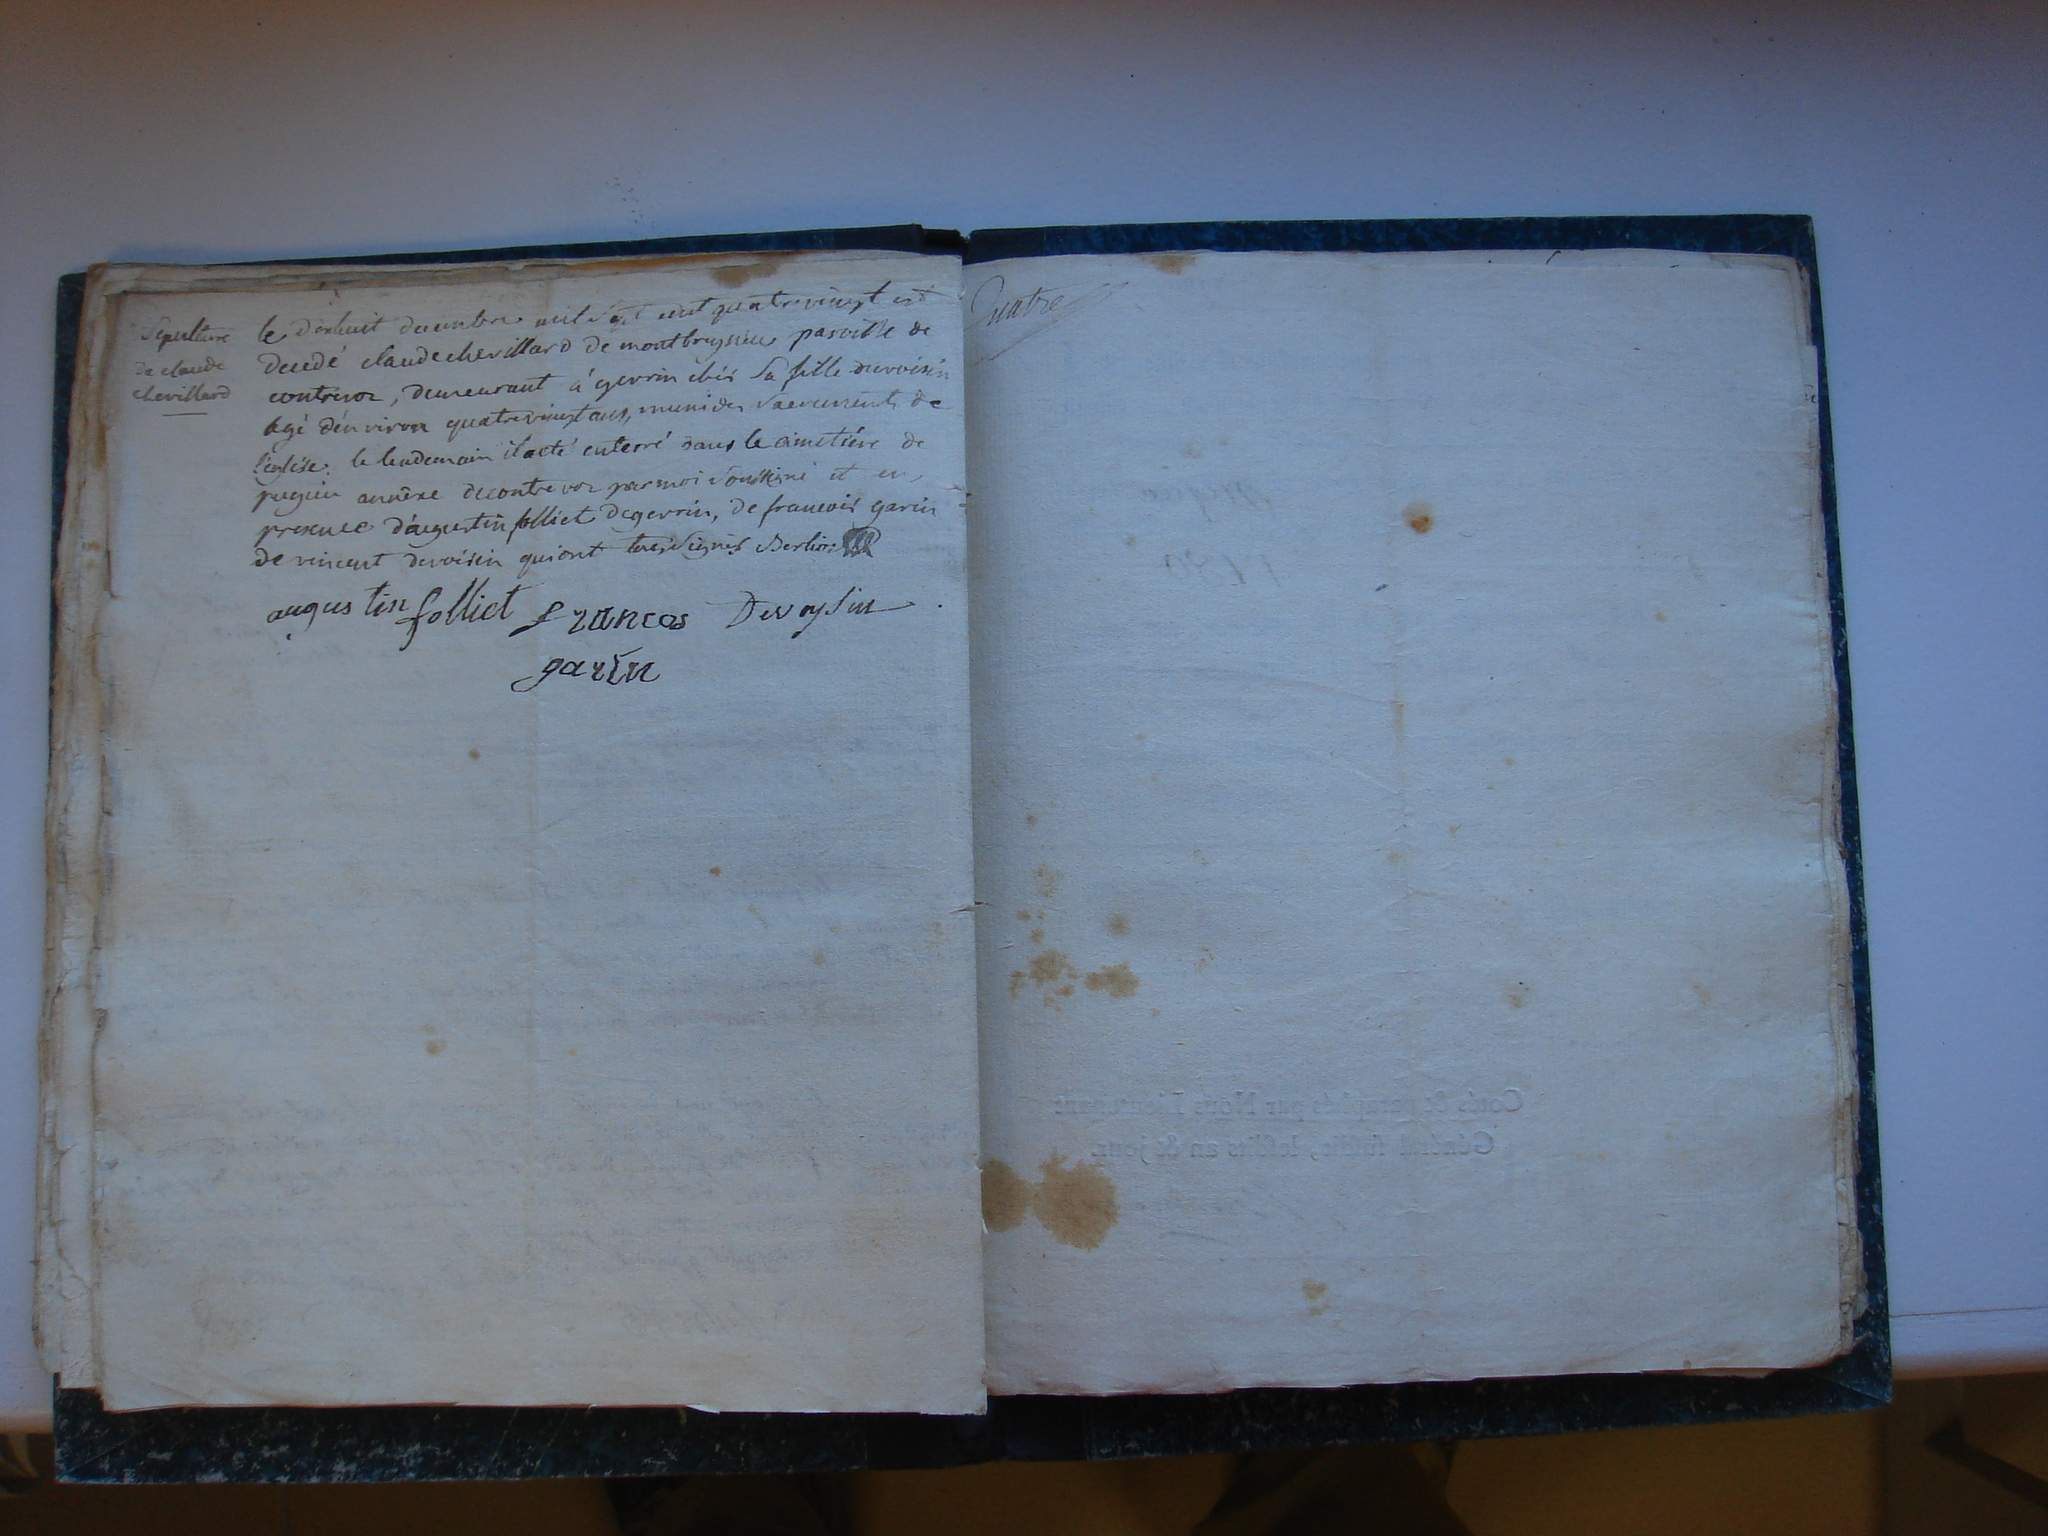 Sépulture
de claude
chevillard
le dixhuit decembre mil sept cent quatrevingt est
decedé claude chevillard de montbreyzieu paroisse de
contrevoz, demeurant à gevrin chés sa fille devoisin
agé d'environ quatrevingt ans, muni des sacrements de
l'église. le lendemain il a été enterré dans le cimetiére de
pugieu annéxe de contrevoz par moi soussigné et en
presence d'augustin folliet de gevrin, de francois garin
de vincent devoisin qui ont tous signés Berlioz
augustin folliet francos Devoysin
garin
Quatre
Cotés & paraphés par Nous Lieutenant
Général susdit, lesdits an & jour.